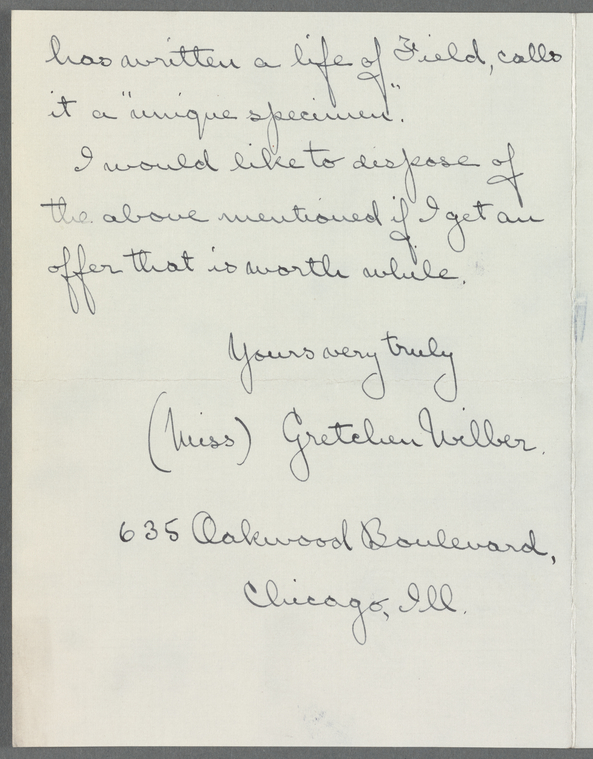 has written a life of Field, calls
it a "unique specimen".
I would like to dispose of
the above mentioned if I get an
offer that is worth while.
Yours very truly
(Miss) Gretchen Wilber.
635 Oakwood Boulevard,
Chicago, Ill.